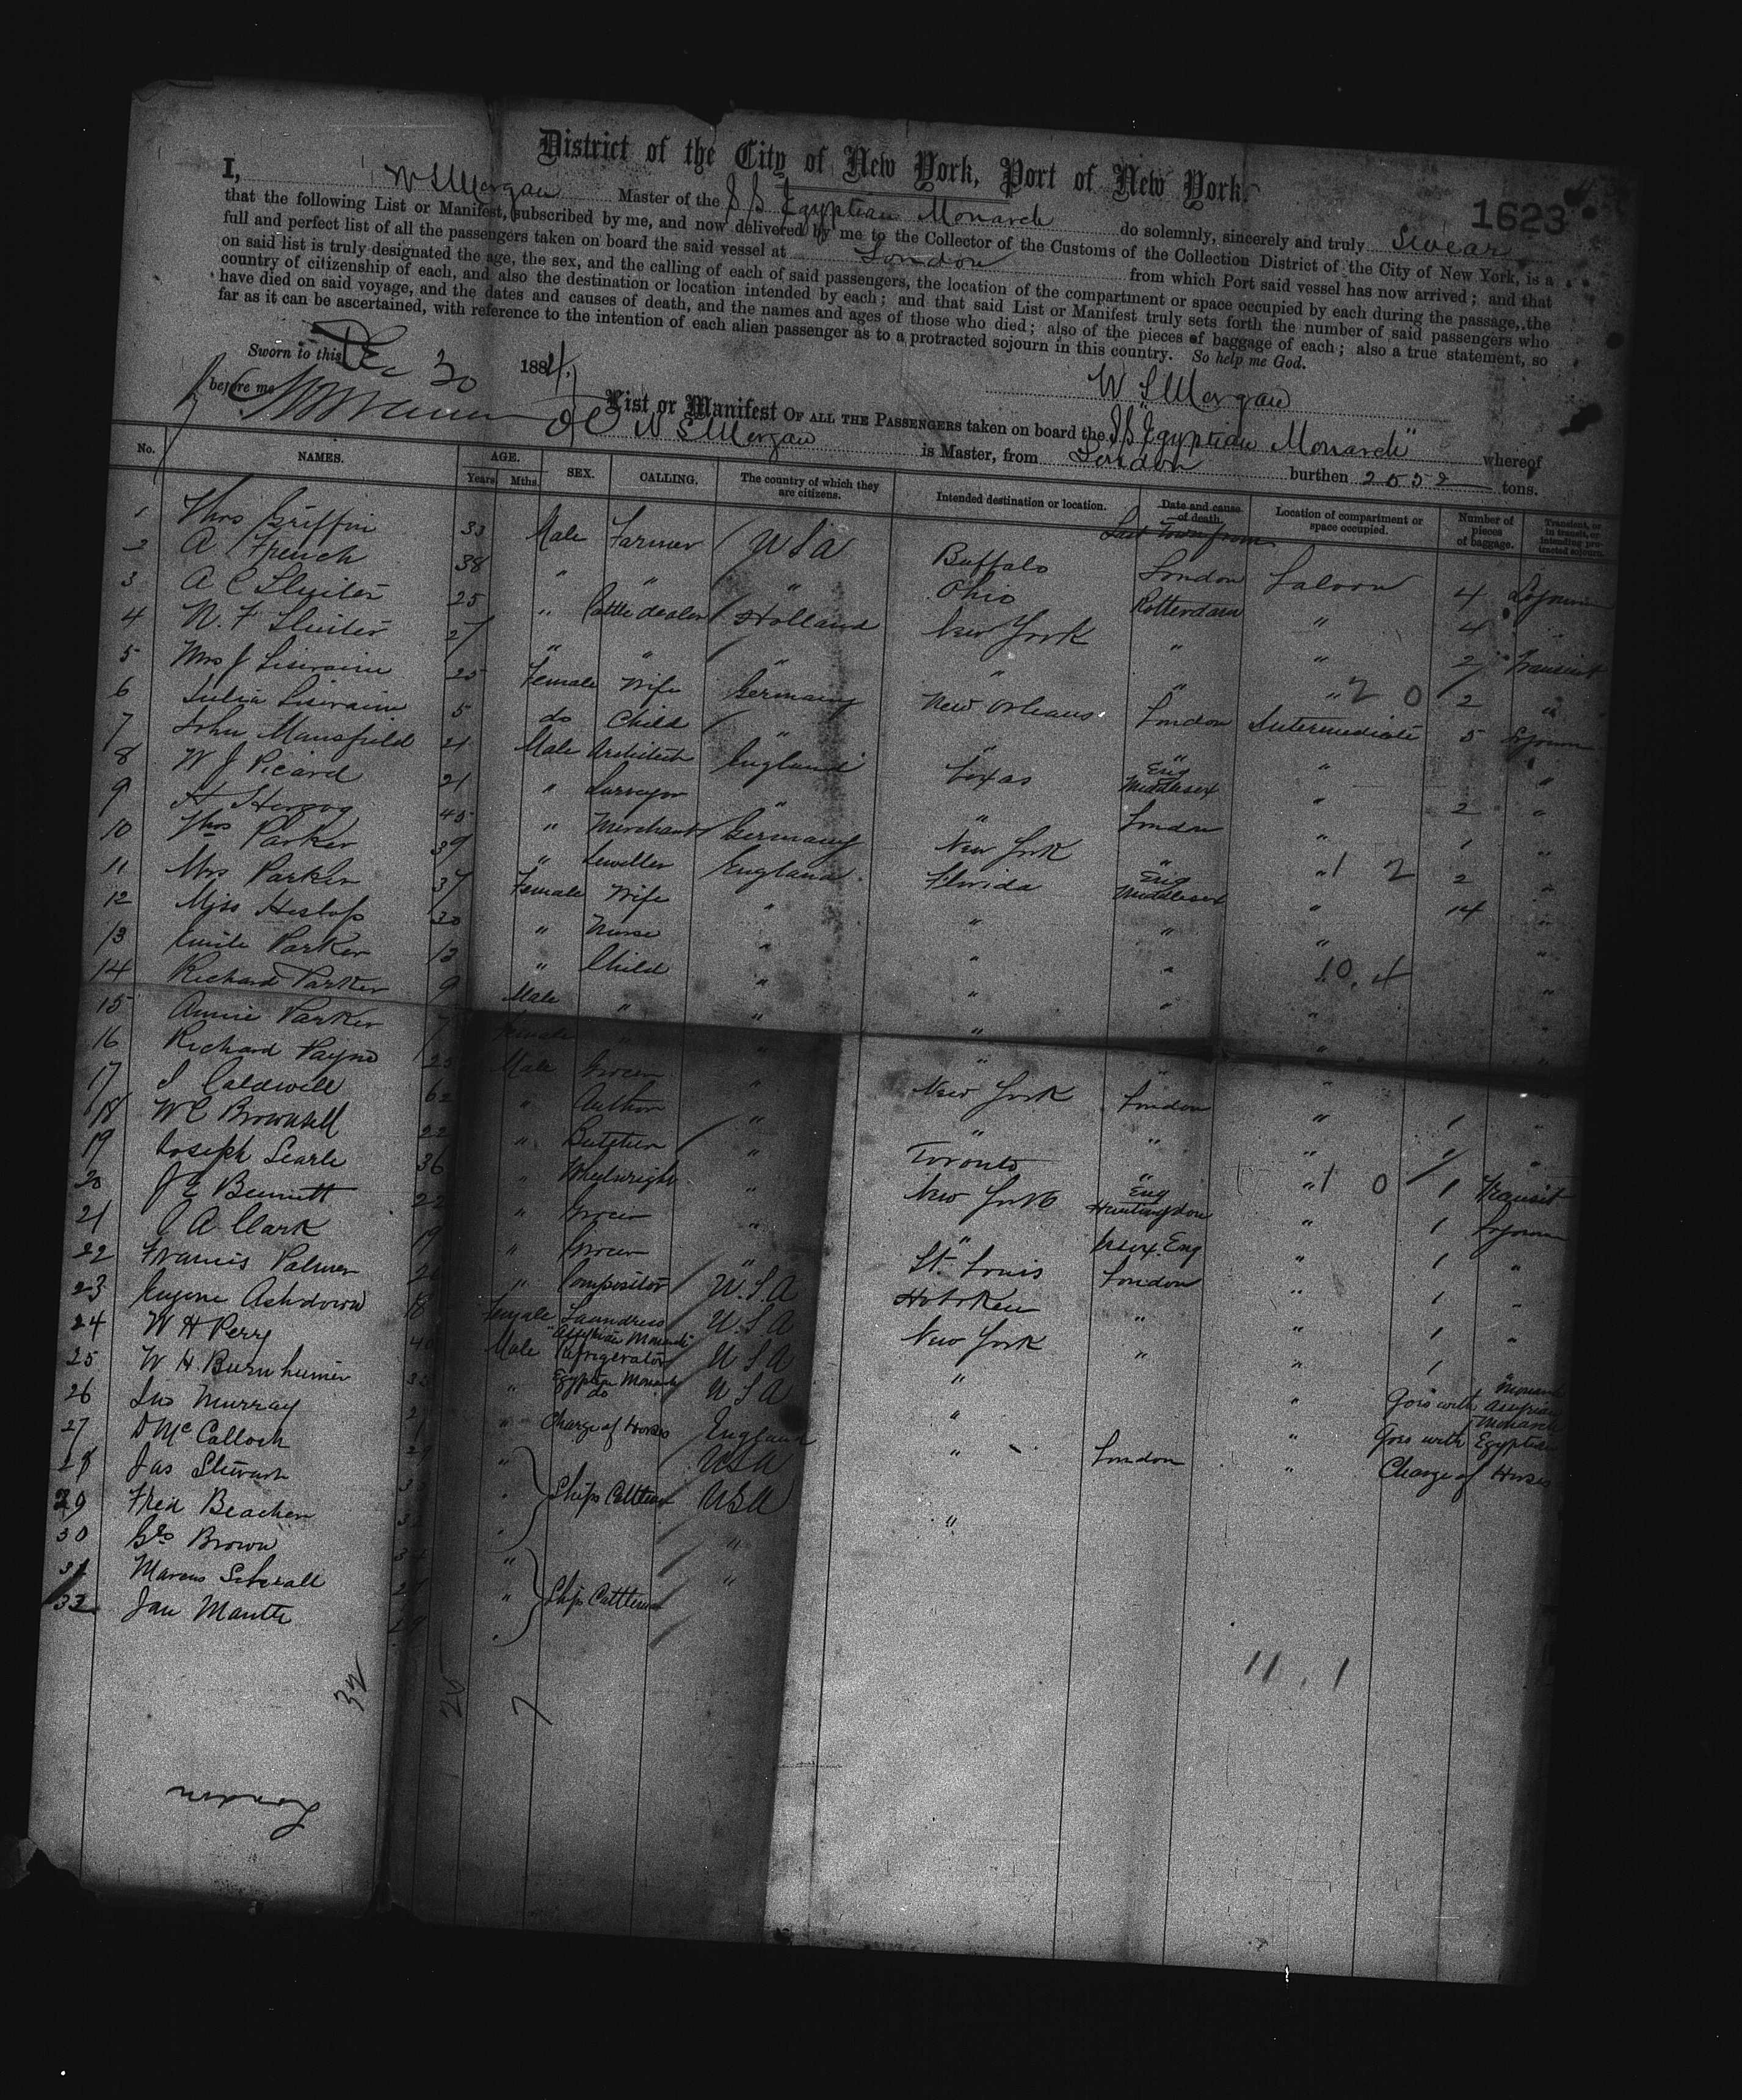 District of the City of New York, Port of New York.
1623
I, W S Morgan Master of the S S Egyptian Monarch do solemnly, sincerely and truly Swear
that the following List or Manifest, subscribed by me, and now delivered by me to the Collector of the Customs of the Collection District of the City of New York, is a
full and perfect list of all the passengers taken on board the said vessel at London from which Port said vessel has now arrived; and that
on said list is truly designated the age, the sex, and the calling of each of said passengers, the location of the compartment or space occupied by each during the passage, the
country of citizenship of each, and also the destination or location intended by each; and that said List or Manifest truly sets forth the number of said passengers who
have died on said voyage, and the dates and causes of death, and the names and ages of those who died; also of the pieces of baggage of each; also a true statement, so
far as it can be ascertained, with reference to the intention of each alien passenger as to a protracted sojourn in this country. So help me God.
Sworn to this Dec 30 1884.
W S Morgan
before me
List or Manifest OF ALL THE PASSENGERS taken on board the S S "Egyptian Monarch" whereof
W S Morgan is Master, from London burthen 2552 tons.
No. NAMES. AGE. Years Mths. SEX. CALLING. The country of which they are citizens. Intended destination or location. Date and cause of death. Last Town from Location of compartment or space occupied. Number of pieces of baggage. Transient, or in transit, or intending protracted sojourn.
1 Thos Griffin 33 Male Farmer USA Buffalo London Saloon 4 Sojourn
2 A French 38 " " " Ohio Rotterdam " 4
3 A C Sluiter 25 " Cattle dealer Holland New York " " 2 Transient
4 N. F Sluiter 27 " " " " " " 2 "
5 Mrs J 25 Female Wife Germany New Orleans London Intermediate 5 Sojourn
6 Julia 5 do Child " " " " "
7 John Mansfield 21 Male Architect England Texas Eng Middlesex " 2 "
8 W J Picard 21 " Surveyor " " London " 1 "
9 H Herzog 45 " Merchant Germany New York " " 2 "
10 Thos Parker 39 " Jeweller England Florida Eng Middlesex " 14 "
11 Mrs Parker 37 Female Wife " " " " "
12 Miss Heslop 30 " Nurse " " " "
13 Emile Parker 13 " Child " " " "
14 Richard Parker 9 Male " " " " "
15 Annie Parker 7 Female " " " " "
16 Richard Payne 25 Male Grocer " New York London " 1 "
17 J Caldwell 62 " Author " " " " "
18 W C Brownsell 22 " Butcher " Toronto " " 1 Transit
19 Joseph Searle 36 " Wheelwright " New York Eng Huntingdon " 1 Sojourn
20 J E Bennett 22 " Grocer " " Essex. Eng " 1 "
21 C A Clark 19 " Grocer " St. Louis London " 1 "
22 Francis Palmer " Compositor U.S.A Hoboken " " 1 "
23 Eugene Ashdown 18 Female Laundress U.S.A New York " " 1
24 W H Perry 40 Male "Assyrian Monarch" Refrigerator U S A " " Goes with Assyrian Monarch
25 W H Burnhumer " Egyptian Monarch do U S A " " Goes with Egyptian Monarch
26 Jno Murray " Charge of Horses England " London " Charge of Horses
27 D McCalloch 29 " Ships Cattlemen USA "
28 Jas Stewart " USA
29 Fred Beacher " "
30 Geo Brown " Ships Cattlemen "
31 Marcus
32 Jan Mantte 29 "
20
12
10.4
10
11.1
32
25
7
London